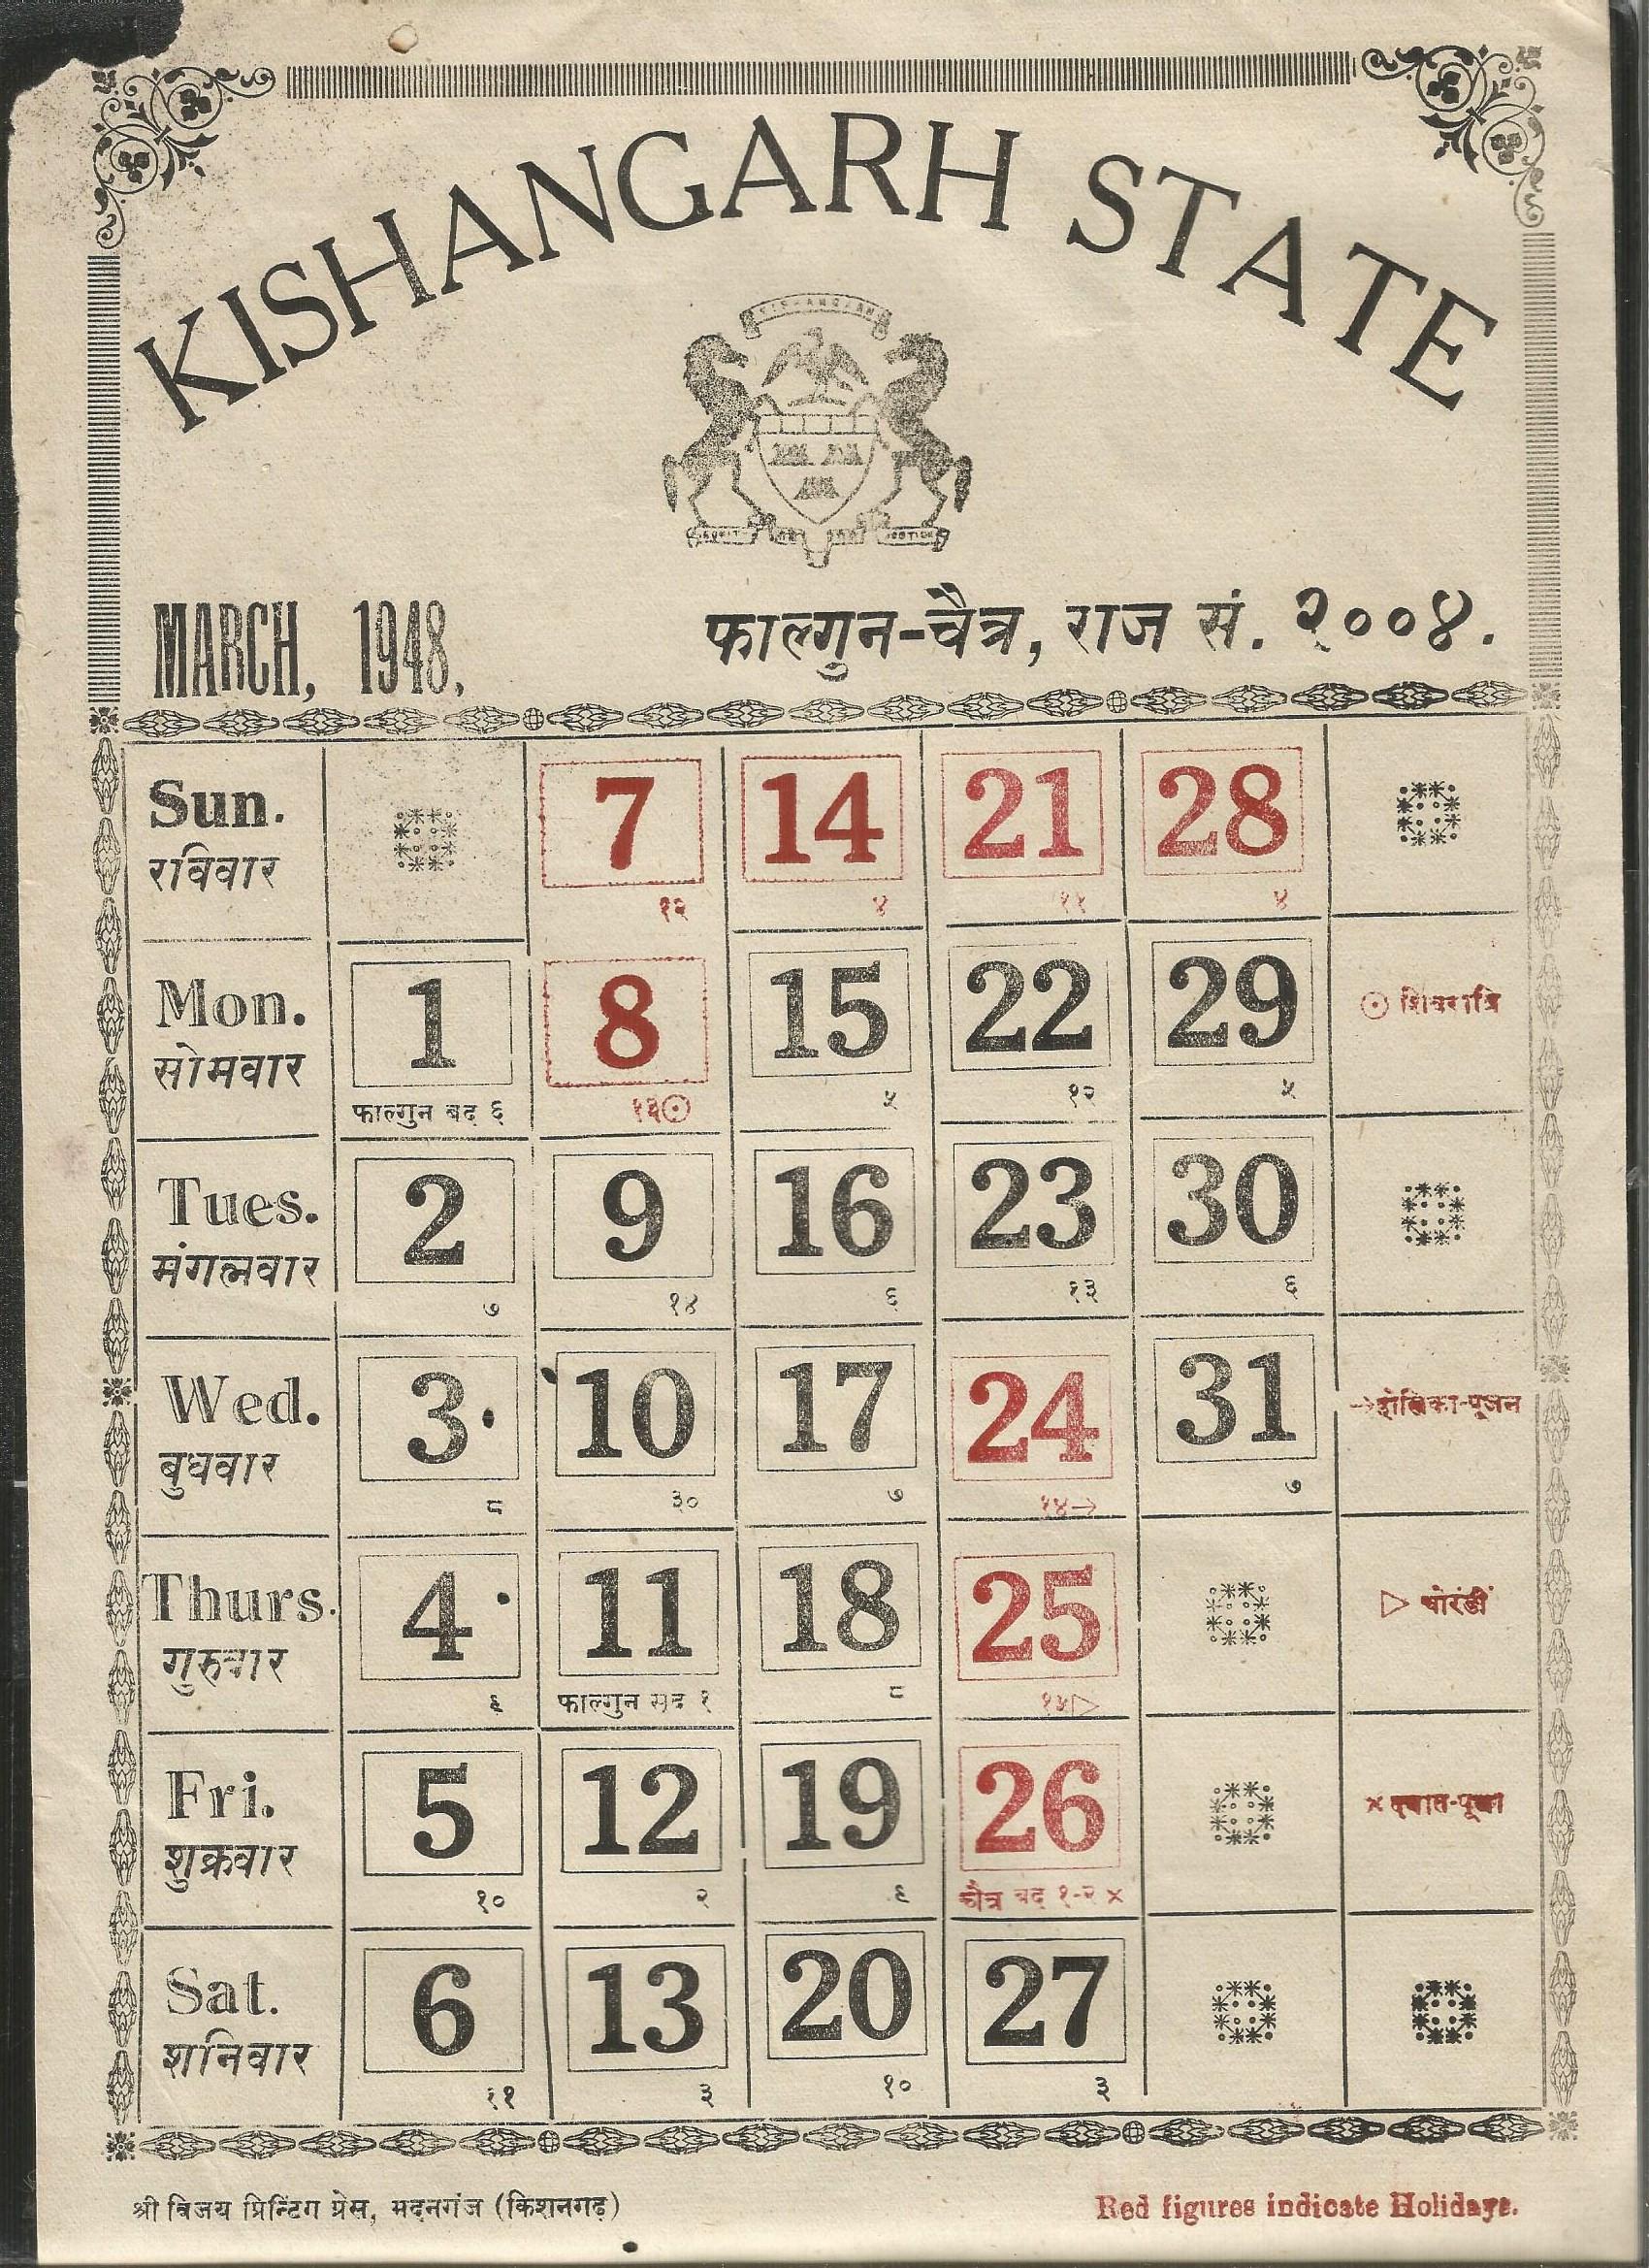 KISHANGARH STATE
MARCH, 1948.
फाल्गुन-चैत्र, राज सं. २००४.
Sun. 7 14 21 28
रविवार
१२ ४ ११ ४
Mon. 1 8 15 22 29 ⊙ शिवरात्रि
सोमवार
फाल्गुन बद ६ १३⊙ ५ १२ ५
Tues. 2 9 16 23 30
मंगलवार
७ १४ ६ १३ ६
Wed. 3 10 17 24 31 →होलिका-पूजन
बुधवार
८ ३० ७ १४→ ७
Thurs. 4 11 18 25 ▷
गुरुवार
९ फाल्गुन सुद १ ८ १५▷
Fri. 5 12 19 26 ×
शुक्रवार
१० २ ९ चैत्र बद १-२ ×
Sat. 6 13 20 27
शनिवार
११ ३ १० ३
श्री विजय प्रिन्टिंग प्रेस, मदनगंज (किशनगढ़)
Red figures indicate Holidays.